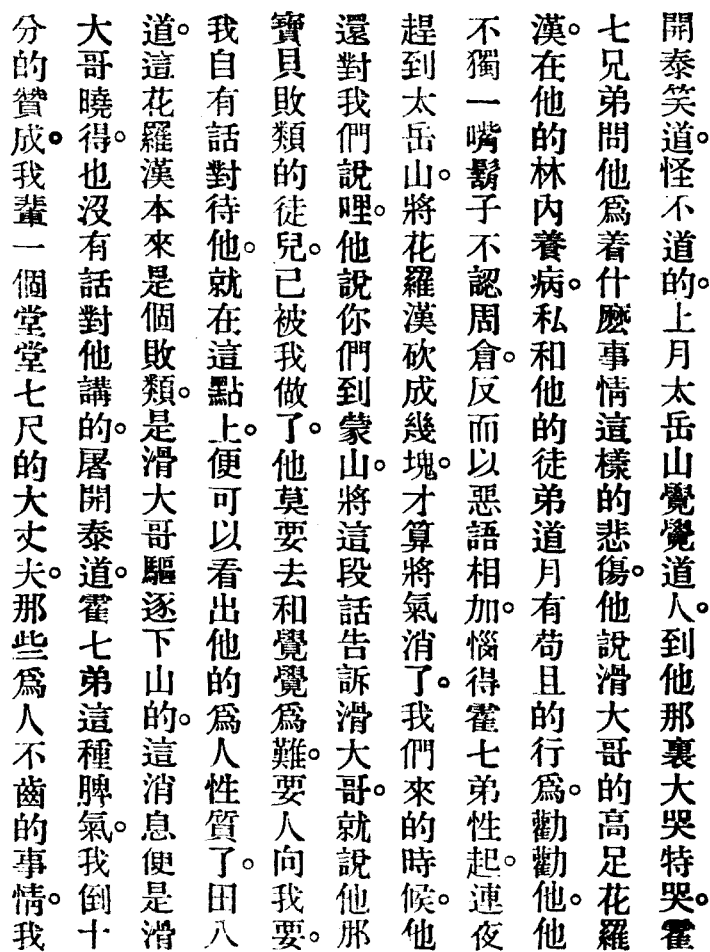 開泰笑道。怪不道的。上月太岳山覺覺道人。到他那裏大哭特哭。霍
七兄弟問他爲着什麽事情這樣的悲傷。他說滑大哥的高足花羅
漢。在他的林內養病。私和他的徒弟道月有苟且的行爲。勸勸他。他
不獨一嘴鬍子不認周倉。反而以惡語相加。惱得霍七弟性起。連夜
趕到太岳山。將花羅漢砍成幾塊。才算將氣消了。我們來的時候。他
還對我們說哩。他說你們到蒙山。將這段話告訴滑大哥。就說他那
寶貝敗類的徒兒。已被我做了。他莫要去和覺覺爲難。要人向我要。
我自有話對待他。就在這點上。便可以看出他的爲人性質了。田八
道。這花羅漢本來是個敗類。是滑大哥驅逐下山的。這消息便是滑
大哥曉得。也沒有話對他講的。屠開泰道。霍七弟這種脾氣。我倒十
分的贊成。我輩一個堂堂七尺的大丈夫。那些爲人不齒的事情。我